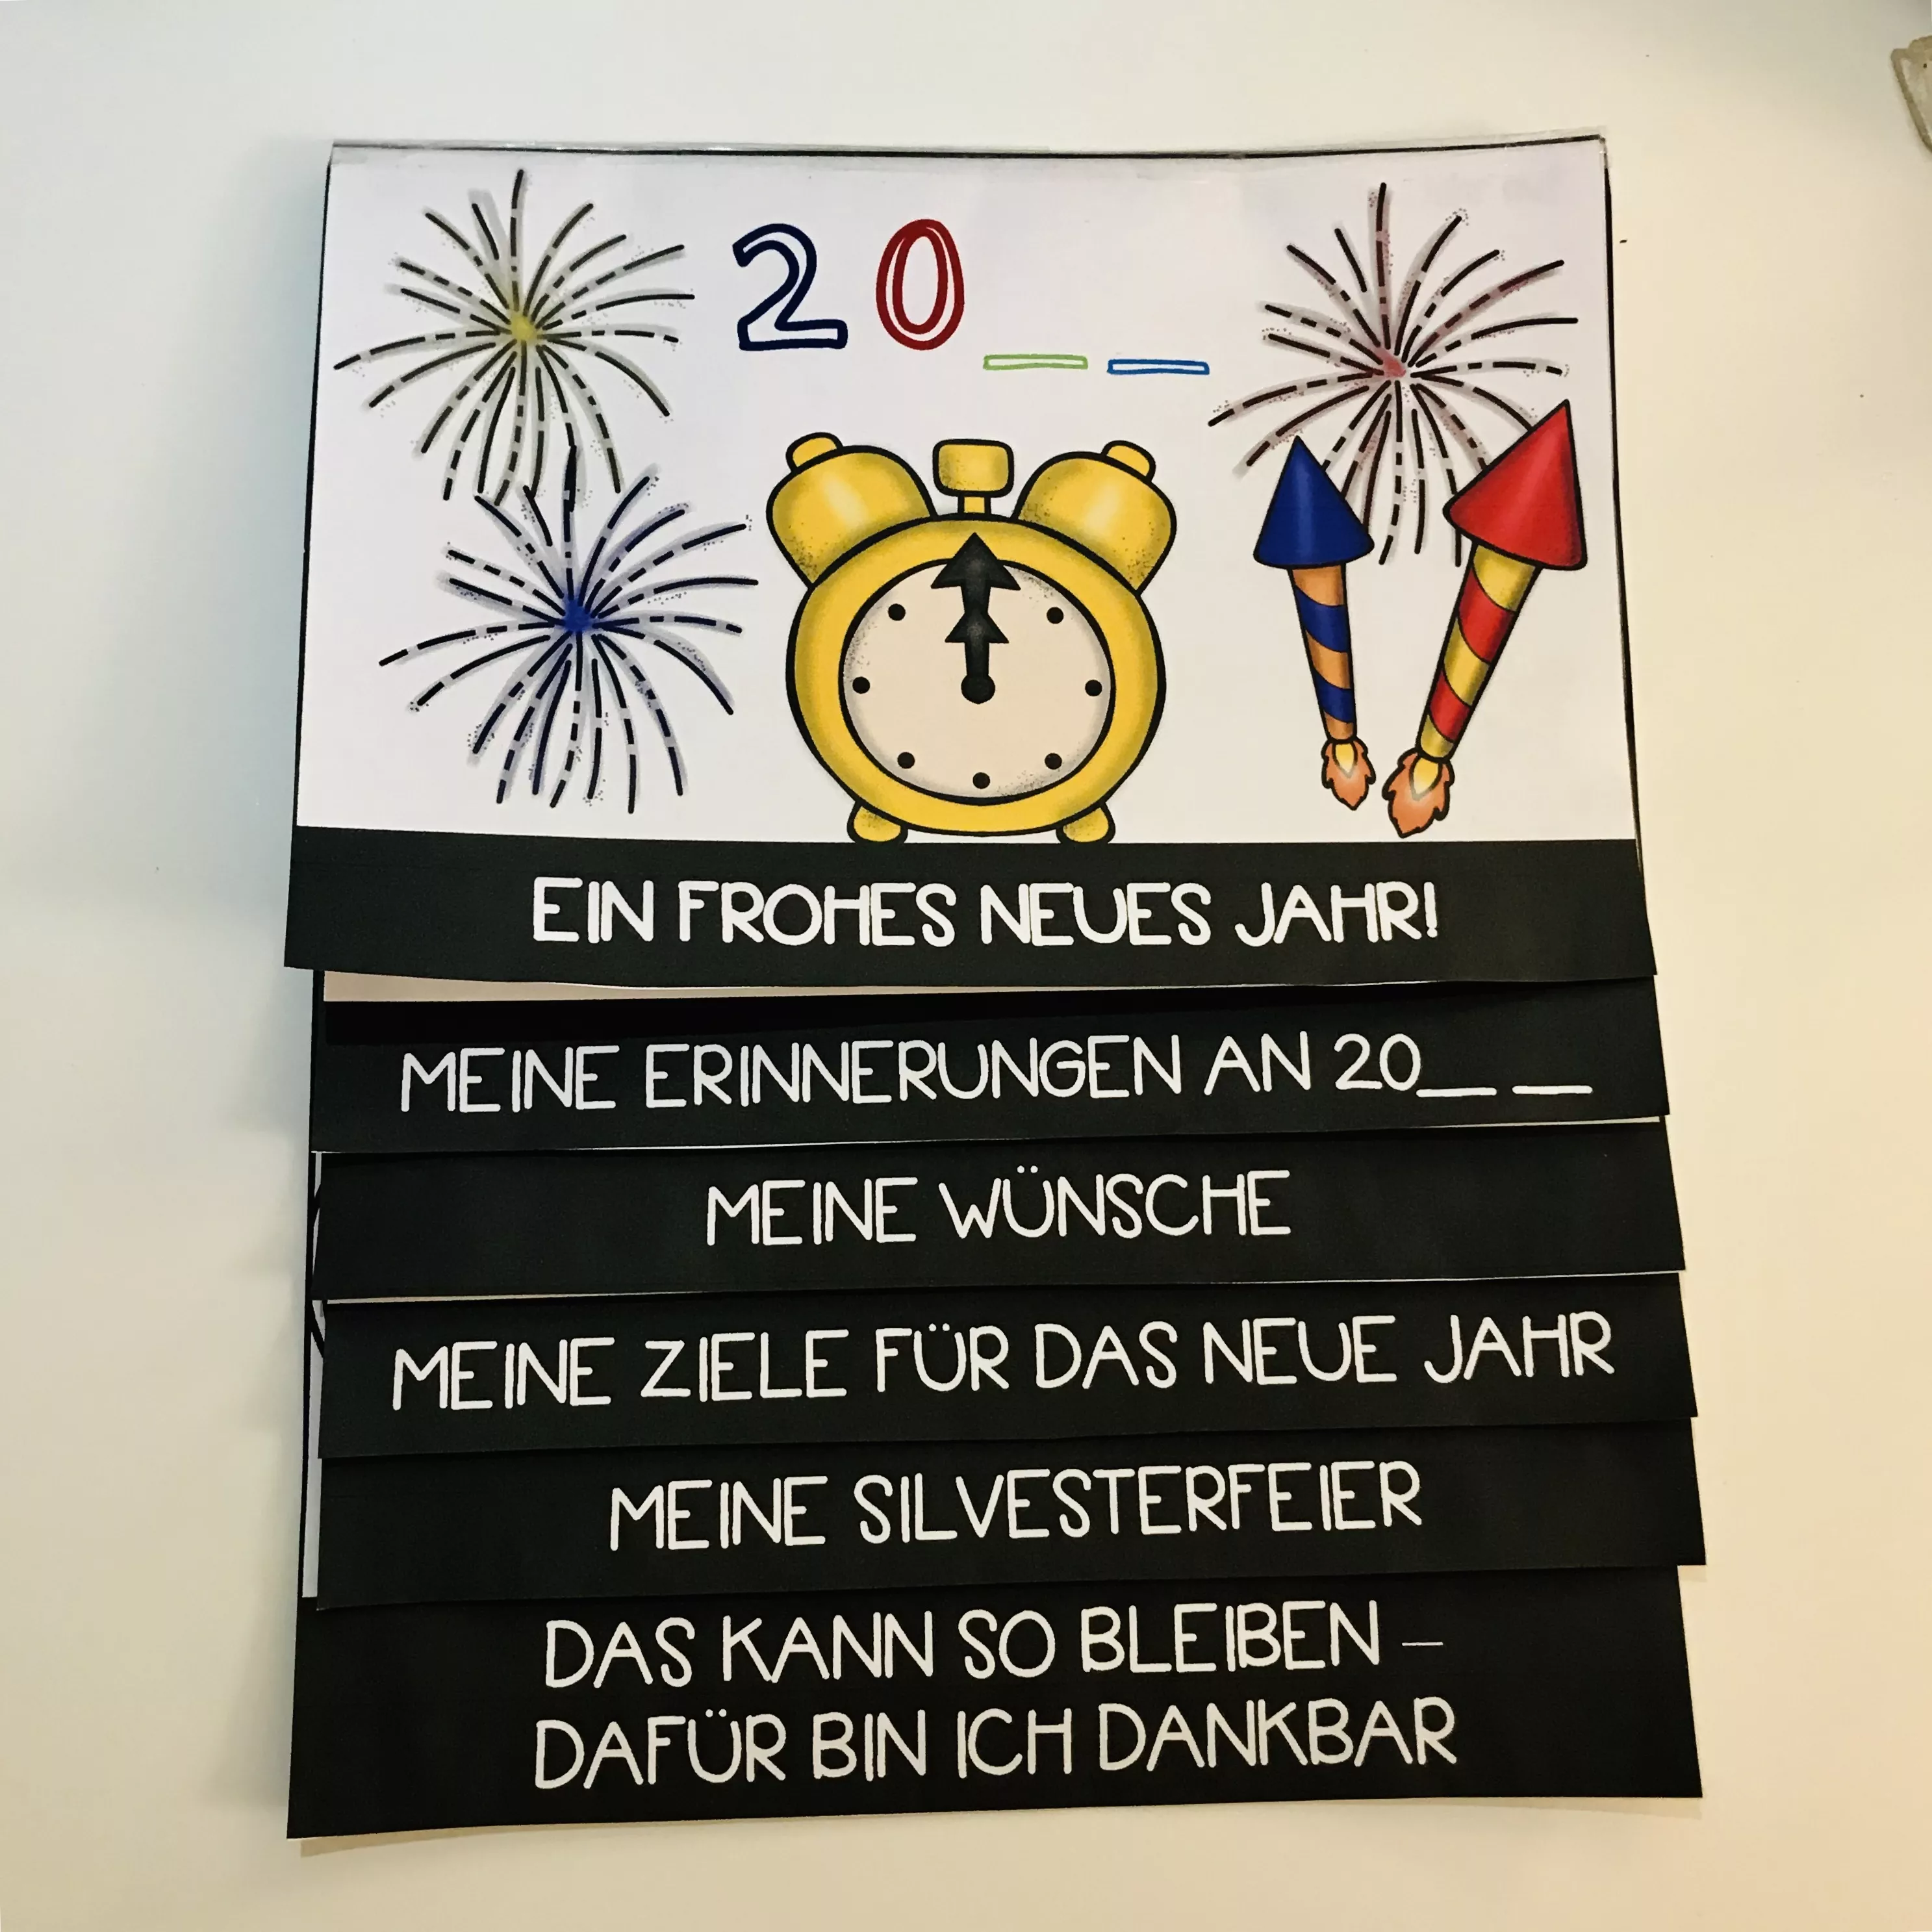 20__ __
EIN FROHES NEUES JAHR!
MEINE ERINNERUNGEN AN 20__ __
MEINE WÜNSCHE
MEINE ZIELE FÜR DAS NEUE JAHR
MEINE SILVESTERFEIER
DAS KANN SO BLEIBEN –
DAFÜR BIN ICH DANKBAR